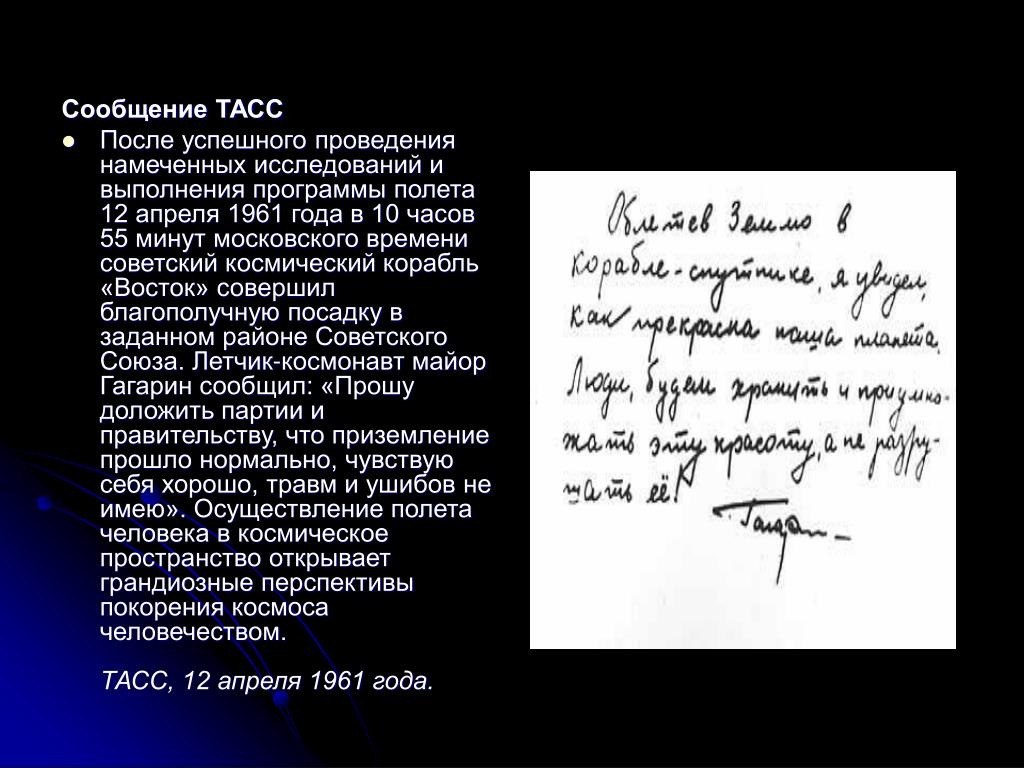 Сообщение ТАСС
После успешного проведения
намеченных исследований и
выполнения программы полета
12 апреля 1961 года в 10 часов
55 минут московского времени
советский космический корабль
«Восток» совершил
благополучную посадку в
заданном районе Советского
Союза. Летчик-космонавт майор
Гагарин сообщил: «Прошу
доложить партии и
правительству, что приземление
прошло нормально, чувствую
себя хорошо, травм и ушибов не
имею». Осуществление полета
человека в космическое
пространство открывает
грандиозные перспективы
покорения космоса
человечеством.
ТАСС, 12 апреля 1961 года.
Облетев Землю в
корабле-спутнике, я увидел,
как прекрасна наша планета.
Люди, будем хранить и приумно-
жать эту красоту, а не разру-
шать её!
Гагарин